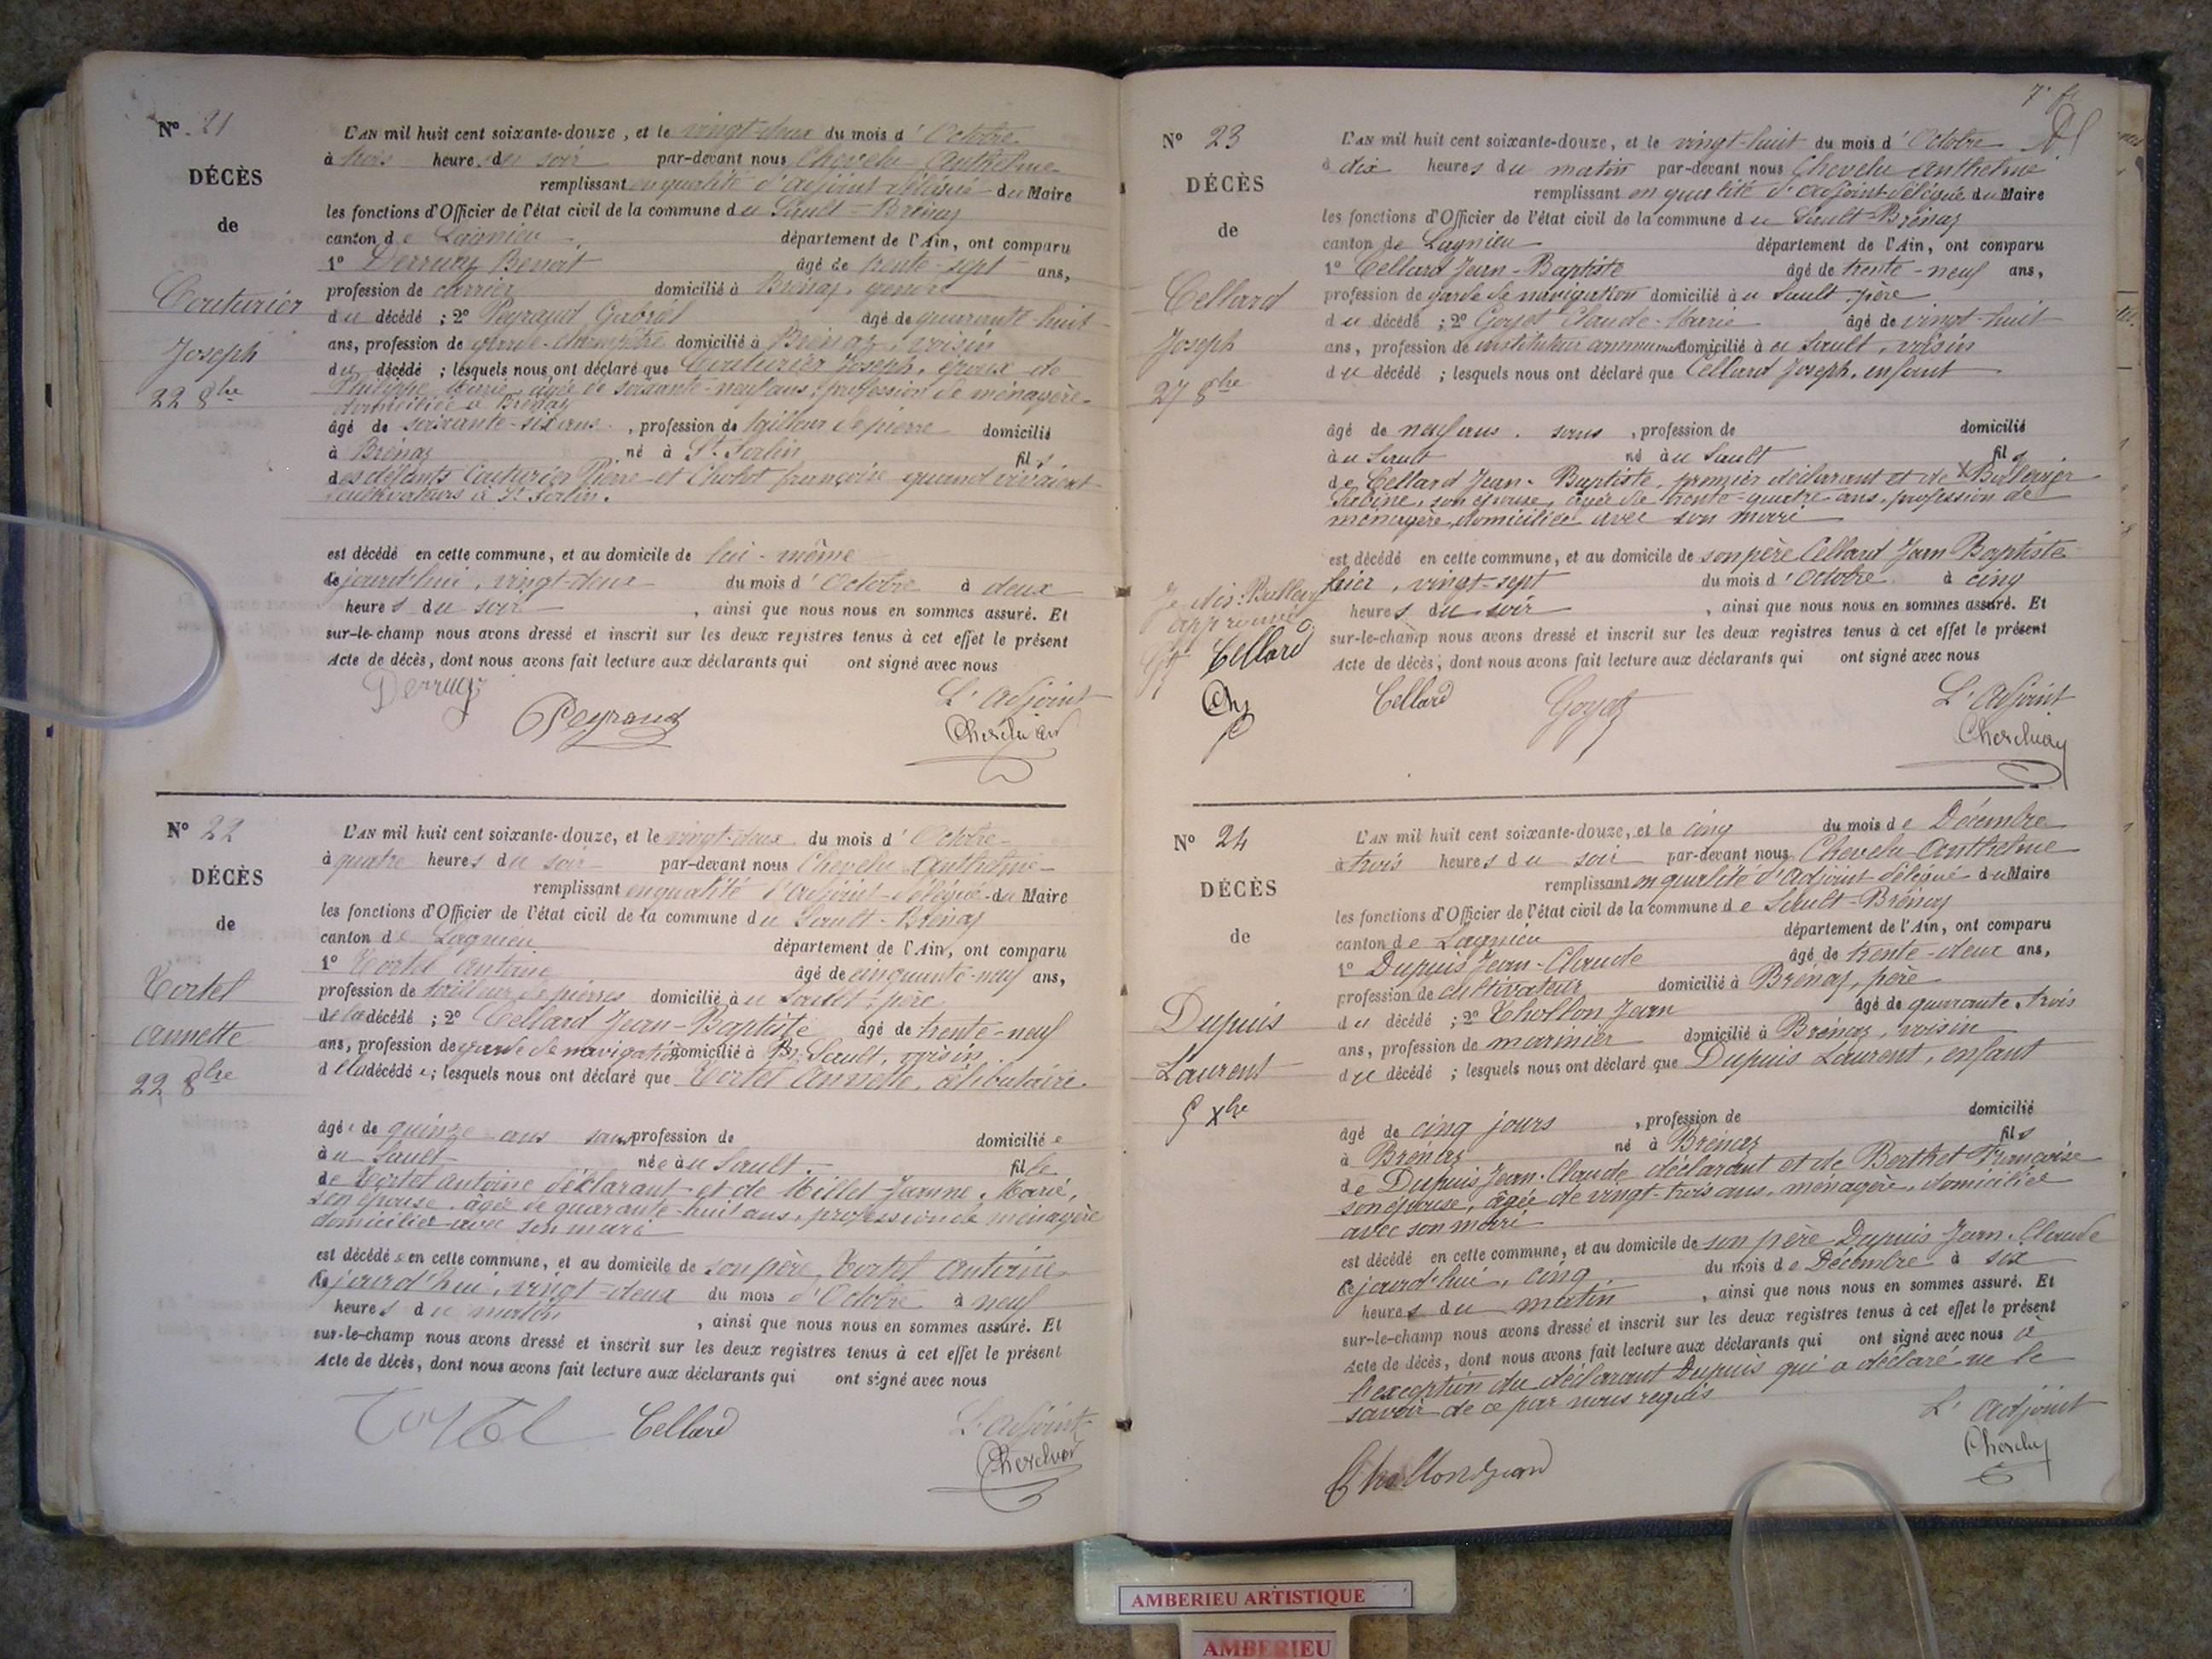 N° 21
DÉCÈS
de
Couturier
Joseph
22 8bre
L'AN mil huit cent soixante-douze, et le vingt-deux du mois d'Octobre
à trois heures du soir par-devant nous Chevelu Anthelme
remplissant en qualité d'adjoint délégué du Maire
les fonctions d'Officier de l'état civil de la commune du Sault-Brénaz
canton de Lagnieu département de l'Ain, ont comparu
1° Derruaz Benoit âgé de trente-sept ans,
profession de carrier domicilié à Brénaz, gendre
du décédé ; 2° Peyraud Gabriel âgé de quarante-huit
ans, profession de garde-champêtre domicilié à Brénaz, voisin
du décédé ; lesquels nous ont déclaré que Couturier Joseph, époux de
Philippe Marie, âgée de soixante-neuf ans, profession de ménagère
domiciliée à Brénaz
âgé de soixante-six ans, profession de tailleur de pierre domicilié
à Brénaz né à St Sorlin fils
des défunts Couturier Pierre et Cholot françoise quand vivaient
cultivateurs à St Sorlin.
est décédé en cette commune, et au domicile de lui-même
cejourd'hui, vingt-deux du mois d'Octobre à deux
heures du soir, ainsi que nous nous en sommes assuré. Et
sur-le-champ nous avons dressé et inscrit sur les deux registres tenus à cet effet le présent
Acte de décès, dont nous avons fait lecture aux déclarants qui ont signé avec nous
L'adjoint
Peyraud
N° 22
DÉCÈS
de
Tortel
Annette
22 8bre
L'AN mil huit cent soixante-douze, et le vingt-deux du mois d'Octobre
à quatre heures du soir par-devant nous Chevelu Anthelme
remplissant en qualité d'adjoint délégué du Maire
les fonctions d'Officier de l'état civil de la commune du Sault-Brénaz
canton de Lagnieu département de l'Ain, ont comparu
1° Tortel Antoine âgé de cinquante-neuf ans,
profession de tailleur de pierres domicilié à u Sault, père
de la décédé ; 2° Cellard Jean-Baptiste âgé de trente-neuf
ans, profession de garde de navigation domicilié à Sault, voisin
d ela décédé e; lesquels nous ont déclaré que Tortel Annette, célibataire
âgée de quinze ans sans profession de domiciliée
à u Sault née à u Sault fille
de Tortel Antoine déclarant et de Millet Jeanne Marie,
son épouse, âgée de quarante-huit ans, profession de ménagère
domiciliée avec son mari
est décédée en cette commune, et au domicile de son père Tortel Antoine
cejourd'hui, vingt-deux du mois d'Octobre à neuf
heures du matin, ainsi que nous nous en sommes assuré. Et
sur-le-champ nous avons dressé et inscrit sur les deux registres tenus à cet effet le présent
Acte de décès, dont nous avons fait lecture aux déclarants qui ont signé avec nous
Tortel Cellard L'adjoint
N° 23
DÉCÈS
de
Cellard
Joseph
27 8bre
L'AN mil huit cent soixante-douze, et le vingt-huit du mois d'Octobre
à dix heures du matin par-devant nous Chevelu Anthelme
remplissant en qualité d'adjoint délégué du Maire
les fonctions d'Officier de l'état civil de la commune du Sault-Brénaz
canton de Lagnieu département de l'Ain, ont comparu
1° Cellard Jean-Baptiste âgé de trente-neuf ans,
profession de garde de navigation domicilié à u Sault, père
du décédé ; 2° Goyet Claude-Marie âgé de vingt-huit
ans, profession de instituteur communal domicilié à u Sault, voisin
du décédé ; lesquels nous ont déclaré que Cellard Joseph, enfant
âgé de neuf ans, sans, profession de domicilié
à u Sault né à u Sault fils
de Cellard Jean-Baptiste, premier déclarant et de
son épouse, âgée de trente-quatre ans, profession de
ménagère, domiciliée avec son mari
est décédé en cette commune, et au domicile de son père Cellard Jean Baptiste
hier, vingt-sept du mois d'Octobre à cinq
heures du soir, ainsi que nous nous en sommes assuré. Et
sur-le-champ nous avons dressé et inscrit sur les deux registres tenus à cet effet le présent
Acte de décès, dont nous avons fait lecture aux déclarants qui ont signé avec nous
approuvé
Cellard
Cellard Goyet L'adjoint
N° 24
DÉCÈS
de
Dupuis
Laurent
5 Xbre
L'AN mil huit cent soixante-douze, et le cinq du mois de Décembre
à trois heures du soir par-devant nous Chevelu Anthelme
remplissant en qualité d'adjoint délégué du Maire
les fonctions d'Officier de l'état civil de la commune de Sault-Brénaz
canton de Lagnieu département de l'Ain, ont comparu
1° Dupuis Jean-Claude âgé de trente-deux ans,
profession de cultivateur domicilié à Brénaz, père
du décédé ; 2° Chollon Jean âgé de quarante-trois
ans, profession de marinier domicilié à Brénaz, voisin
du décédé ; lesquels nous ont déclaré que Dupuis Laurent, enfant
âgé de cinq jours, profession de domicilié
à Brénaz né à Brénaz fils
de Dupuis Jean-Claude déclarant et de Berthet Françoise
son épouse, âgée de vingt-trois ans, ménagère, domiciliée
avec son mari
est décédé en cette commune, et au domicile de son père Dupuis Jean-Claude
cejourd'hui, cinq du mois de Décembre à six
heures du matin, ainsi que nous nous en sommes assuré. Et
sur-le-champ nous avons dressé et inscrit sur les deux registres tenus à cet effet le présent
Acte de décès, dont nous avons fait lecture aux déclarants qui ont signé avec nous à
l'exception du déclarant Dupuis qui a déclaré ne le
savoir de ce par nous requis
L'adjoint
AMBERIEU ARTISTIQUE
AMBERIEU